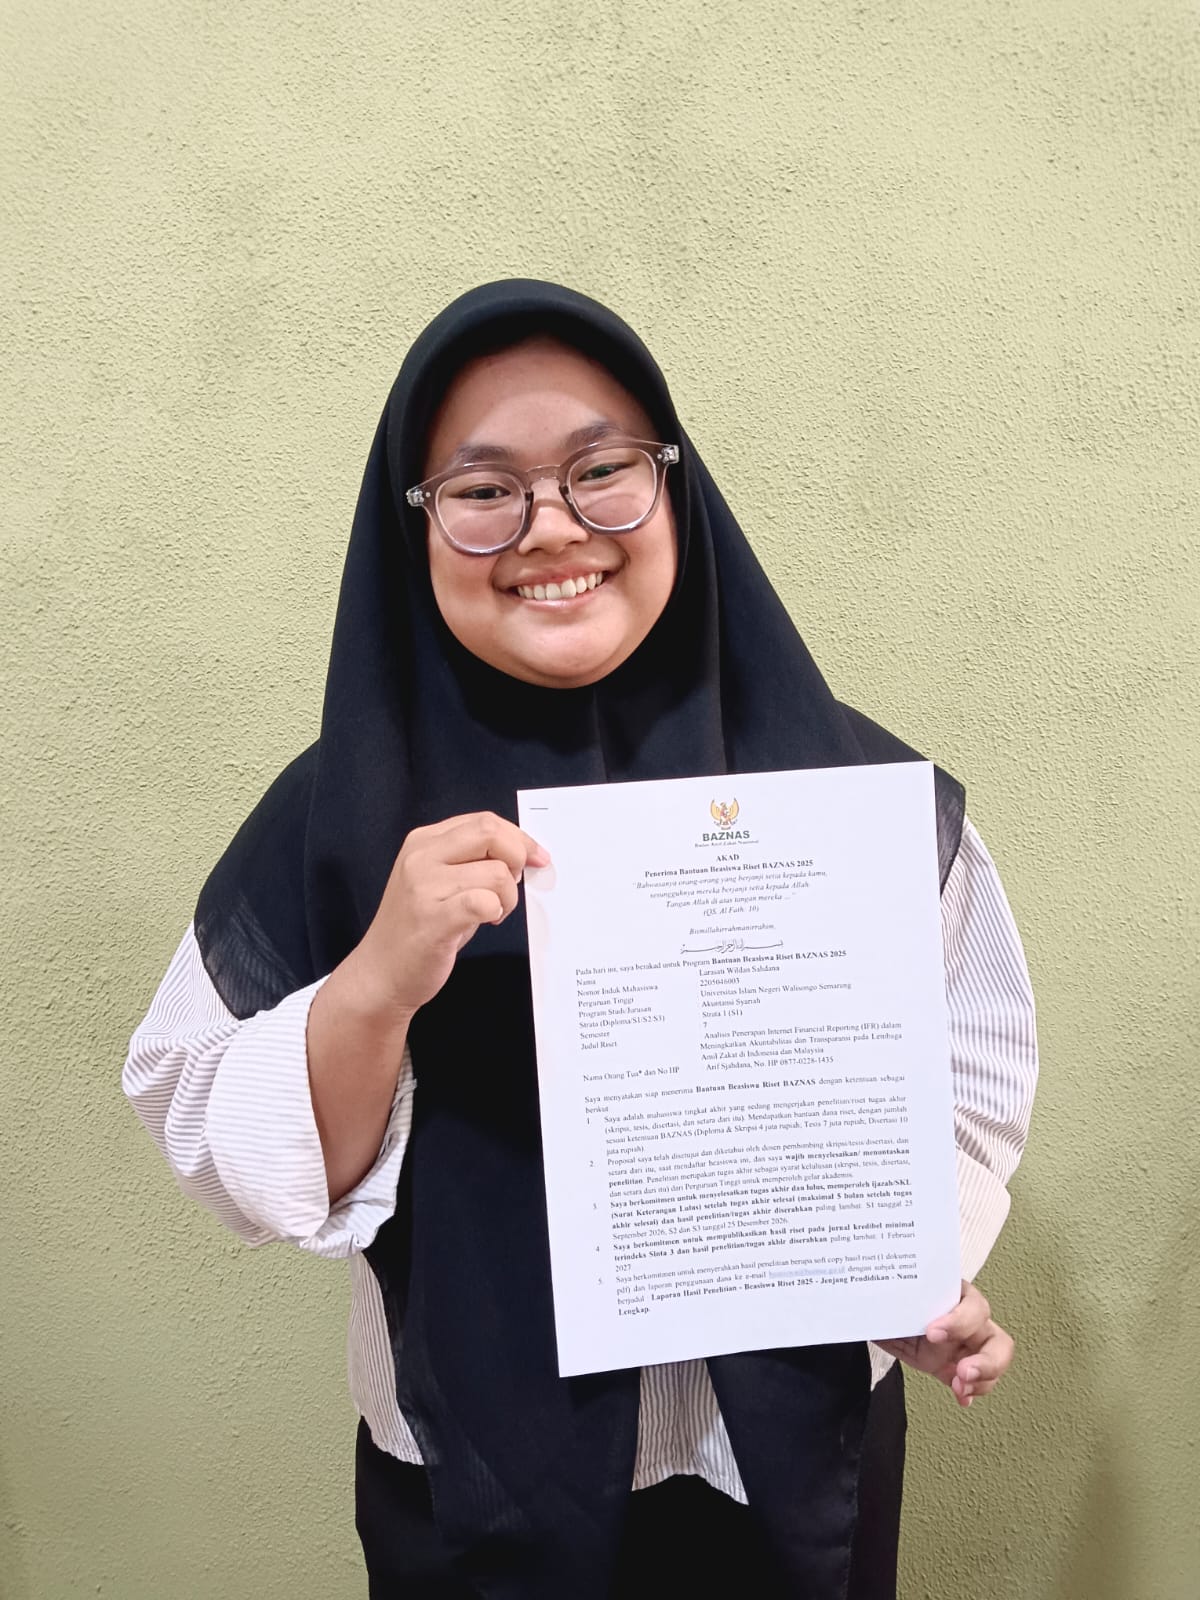 BAZNAS
Badan Amil Zakat Nasional
AKAD
Penerima Bantuan Beasiswa Riset BAZNAS 2025
"Bahwasanya orang-orang yang berjanji setia kepada kamu,
sesungguhnya mereka berjanji setia kepada Allah.
Tangan Allah di atas tangan mereka ... "
(QS. Al Fath: 10)
Bismillahirrahmanirrahim,
Pada hari ini, saya berakad untuk Program Bantuan Beasiswa Riset BAZNAS 2025
Nama Larasati Wildan Sahdana
Nomor Induk Mahasiswa 2205046003
Perguruan Tinggi Universitas Islam Negeri Walisongo Semarang
Program Studi/Jurusan Akuntansi Syariah
Strata (Diploma/S1/S2/S3) Strata 1 (S1)
Semester 7
Judul Riset Analisis Penerapan Internet Financial Reporting (IFR) dalam
Meningkatkan Akuntabilitas dan Transparansi pada Lembaga
Amil Zakat di Indonesia dan Malaysia
Nama Orang Tua* dan No HP Arif Sjahdana, No. HP 0877-0228-1435
Saya menyatakan siap menerima Bantuan Beasiswa Riset BAZNAS dengan ketentuan sebagai
berikut
1. Saya adalah mahasiswa tingkat akhir yang sedang mengerjakan penelitian/riset tugas akhir
(skripsi, tesis, disertasi, dan setara dari itu). Mendapatkan bantuan dana riset, dengan jumlah
sesuai ketentuan BAZNAS (Diploma & Skripsi 4 juta rupiah, Tesis 7 juta rupiah, Disertasi 10
juta rupiah).
2. Proposal saya telah disetujui dan diketahui oleh dosen pembimbing skripsi/tesis/disertasi, dan
setara dari itu, saat mendaftar beasiswa ini, dan saya wajib menyelesaikan/ menuntaskan
penelitian. Penelitian merupakan tugas akhir sebagai syarat kelulusan (skripsi, tesis, disertasi,
dan setara dari itu) dari Perguruan Tinggi untuk memperoleh gelar akademis.
3. Saya berkomitmen untuk menyelesaikan tugas akhir dan lulus, memperoleh ijazah/SKL
(Surat Keterangan Lulus) setelah tugas akhir selesai (maksimal 5 bulan setelah tugas
akhir selesai) dan hasil penelitian/tugas akhir diserahkan paling lambat: S1 tanggal 25
September 2026, S2 dan S3 tanggal 25 Desember 2026.
4. Saya berkomitmen untuk mempublikasikan hasil riset pada jurnal kredibel minimal
terindeks Sinta 3 dan hasil penelitian/tugas akhir diserahkan paling lambat: 1 Februari
2027
5. Saya berkomitmen untuk menyerahkan hasil penelitian berupa soft copy hasil riset (1 dokumen
pdf) dan laporan penggunaan dana ke e-mail dengan subjek email
berjudul : Laporan Hasil Penelitian - Beasiswa Riset 2025 - Jenjang Pendidikan - Nama
Lengkap.